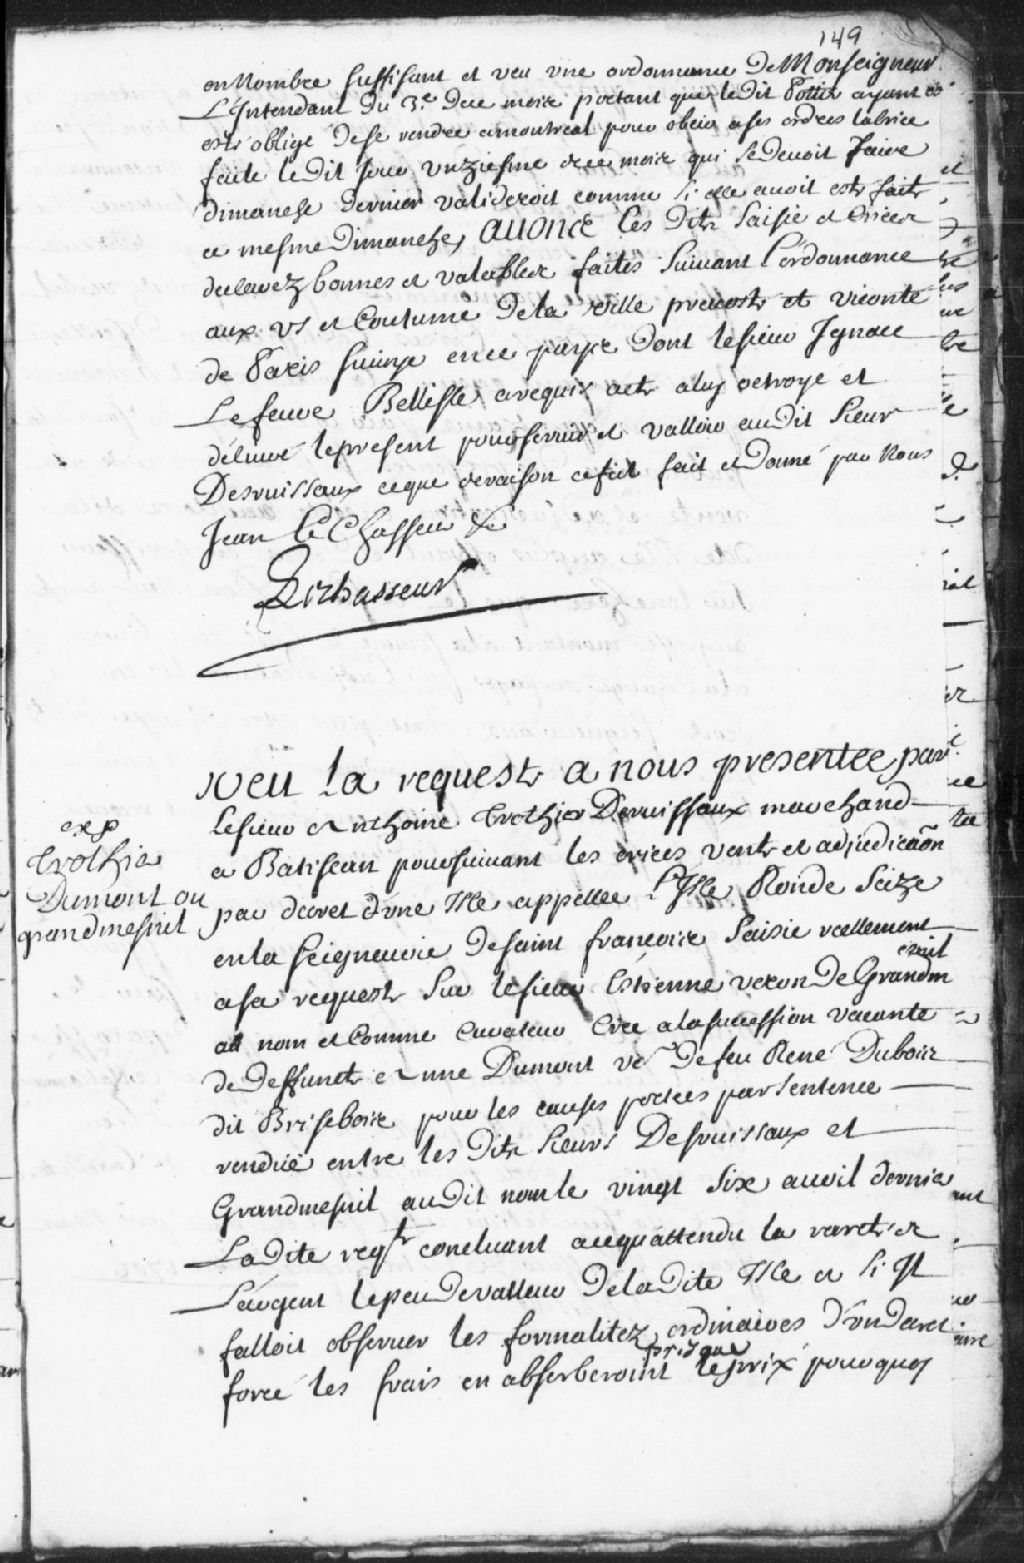 149
en Nombre suffisant et veu une ordonnance De Monseigneur
L'Intendant du 3e due mois portant que ledit Pottier ayant
esté obligé de se rendre a montreal pour obeir a ses ordres la criee
faite ledit jour unziesme de ce mois qui se devoit faire
dimanche dernier valideroit comme si elle avoit esté faite
ce mesme dimanche, avons les dits saisie et criées
declarez bonnes et valables faites suivant l'ordonnance
aux us et Coutume de la ville prevosté et viconté
de Paris suivye en ce payx Dont le sieur Ignace
Lefeuve Bellisle a requis acte a luy octroyé et
délivré le present pour servir et valloir audit sieur
Desruissaux ce que de raison ce fut fait et Donné par Nous
Jean Le Chasseur &
Lechasseur
exp
Trothier
Dumont ou
grandmesnil
Veu la requeste a nous presentée par
Le sieur Anthoine Trothier Desruissaux marchand
a Batiscan poursuivant les criées vente et adjudicãon
par decret d'une Isle appellée l'Isle Ronde seize
en la seigneurie de saint francois saisie reellement
a sa requeste sur le sieur Estienne veron De Grandm
esnil
au nom et Comme Curateur Crée a la succession vacante
de Deffuncte Anne Dumont ve De feu René Dubois
dit Brisebois pour les causes portées par sentence
rendue entre les Dits sieurs Desruissaux et
Grandmesnil au Dit nom le vingt six avril dernier
La dite reqte concluant a ce qu'attendu la rareté de
L'argent le peu de valleur De la dite Isle et si Il
falloit observer les formalitez ordinaires d'un decret
forcé les frais en absorberoint le prix pourquoy